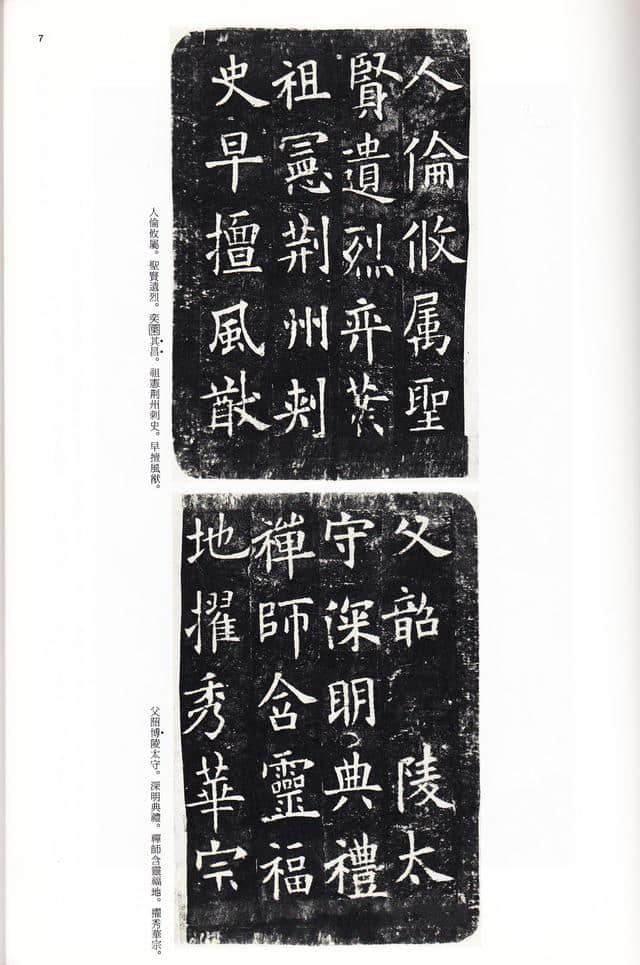 7
人倫攸属聖
賢遺烈弈葉
祖憲荆州刺
史早擅風猷
人倫攸屬。聖賢遺烈。奕葉其昌。祖憲荆州刺史。早擅風猷。
父韶 陵太
守深明典禮
禪師含靈福
地擢秀華宗
父韶博陵太守。深明典禮。禪師含靈福地。擢秀華宗。